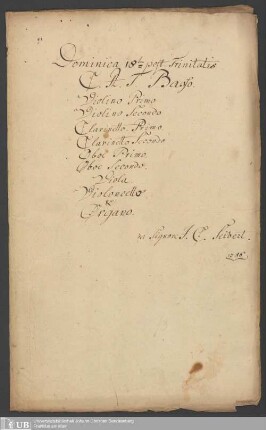 Dominica 18 post Trinitatis
C. A. T. Basso
Violino Primo
Violino Secondo
Clarinetto Primo
Clarinetto Secondo
Oboe Primo
Oboe Secondo
Viola
Violoncello
&
Organo.
Signor J. C. Seibert
UB
Universitätsbibliothek Johann Christian Senckenberg
Frankfurt am Main